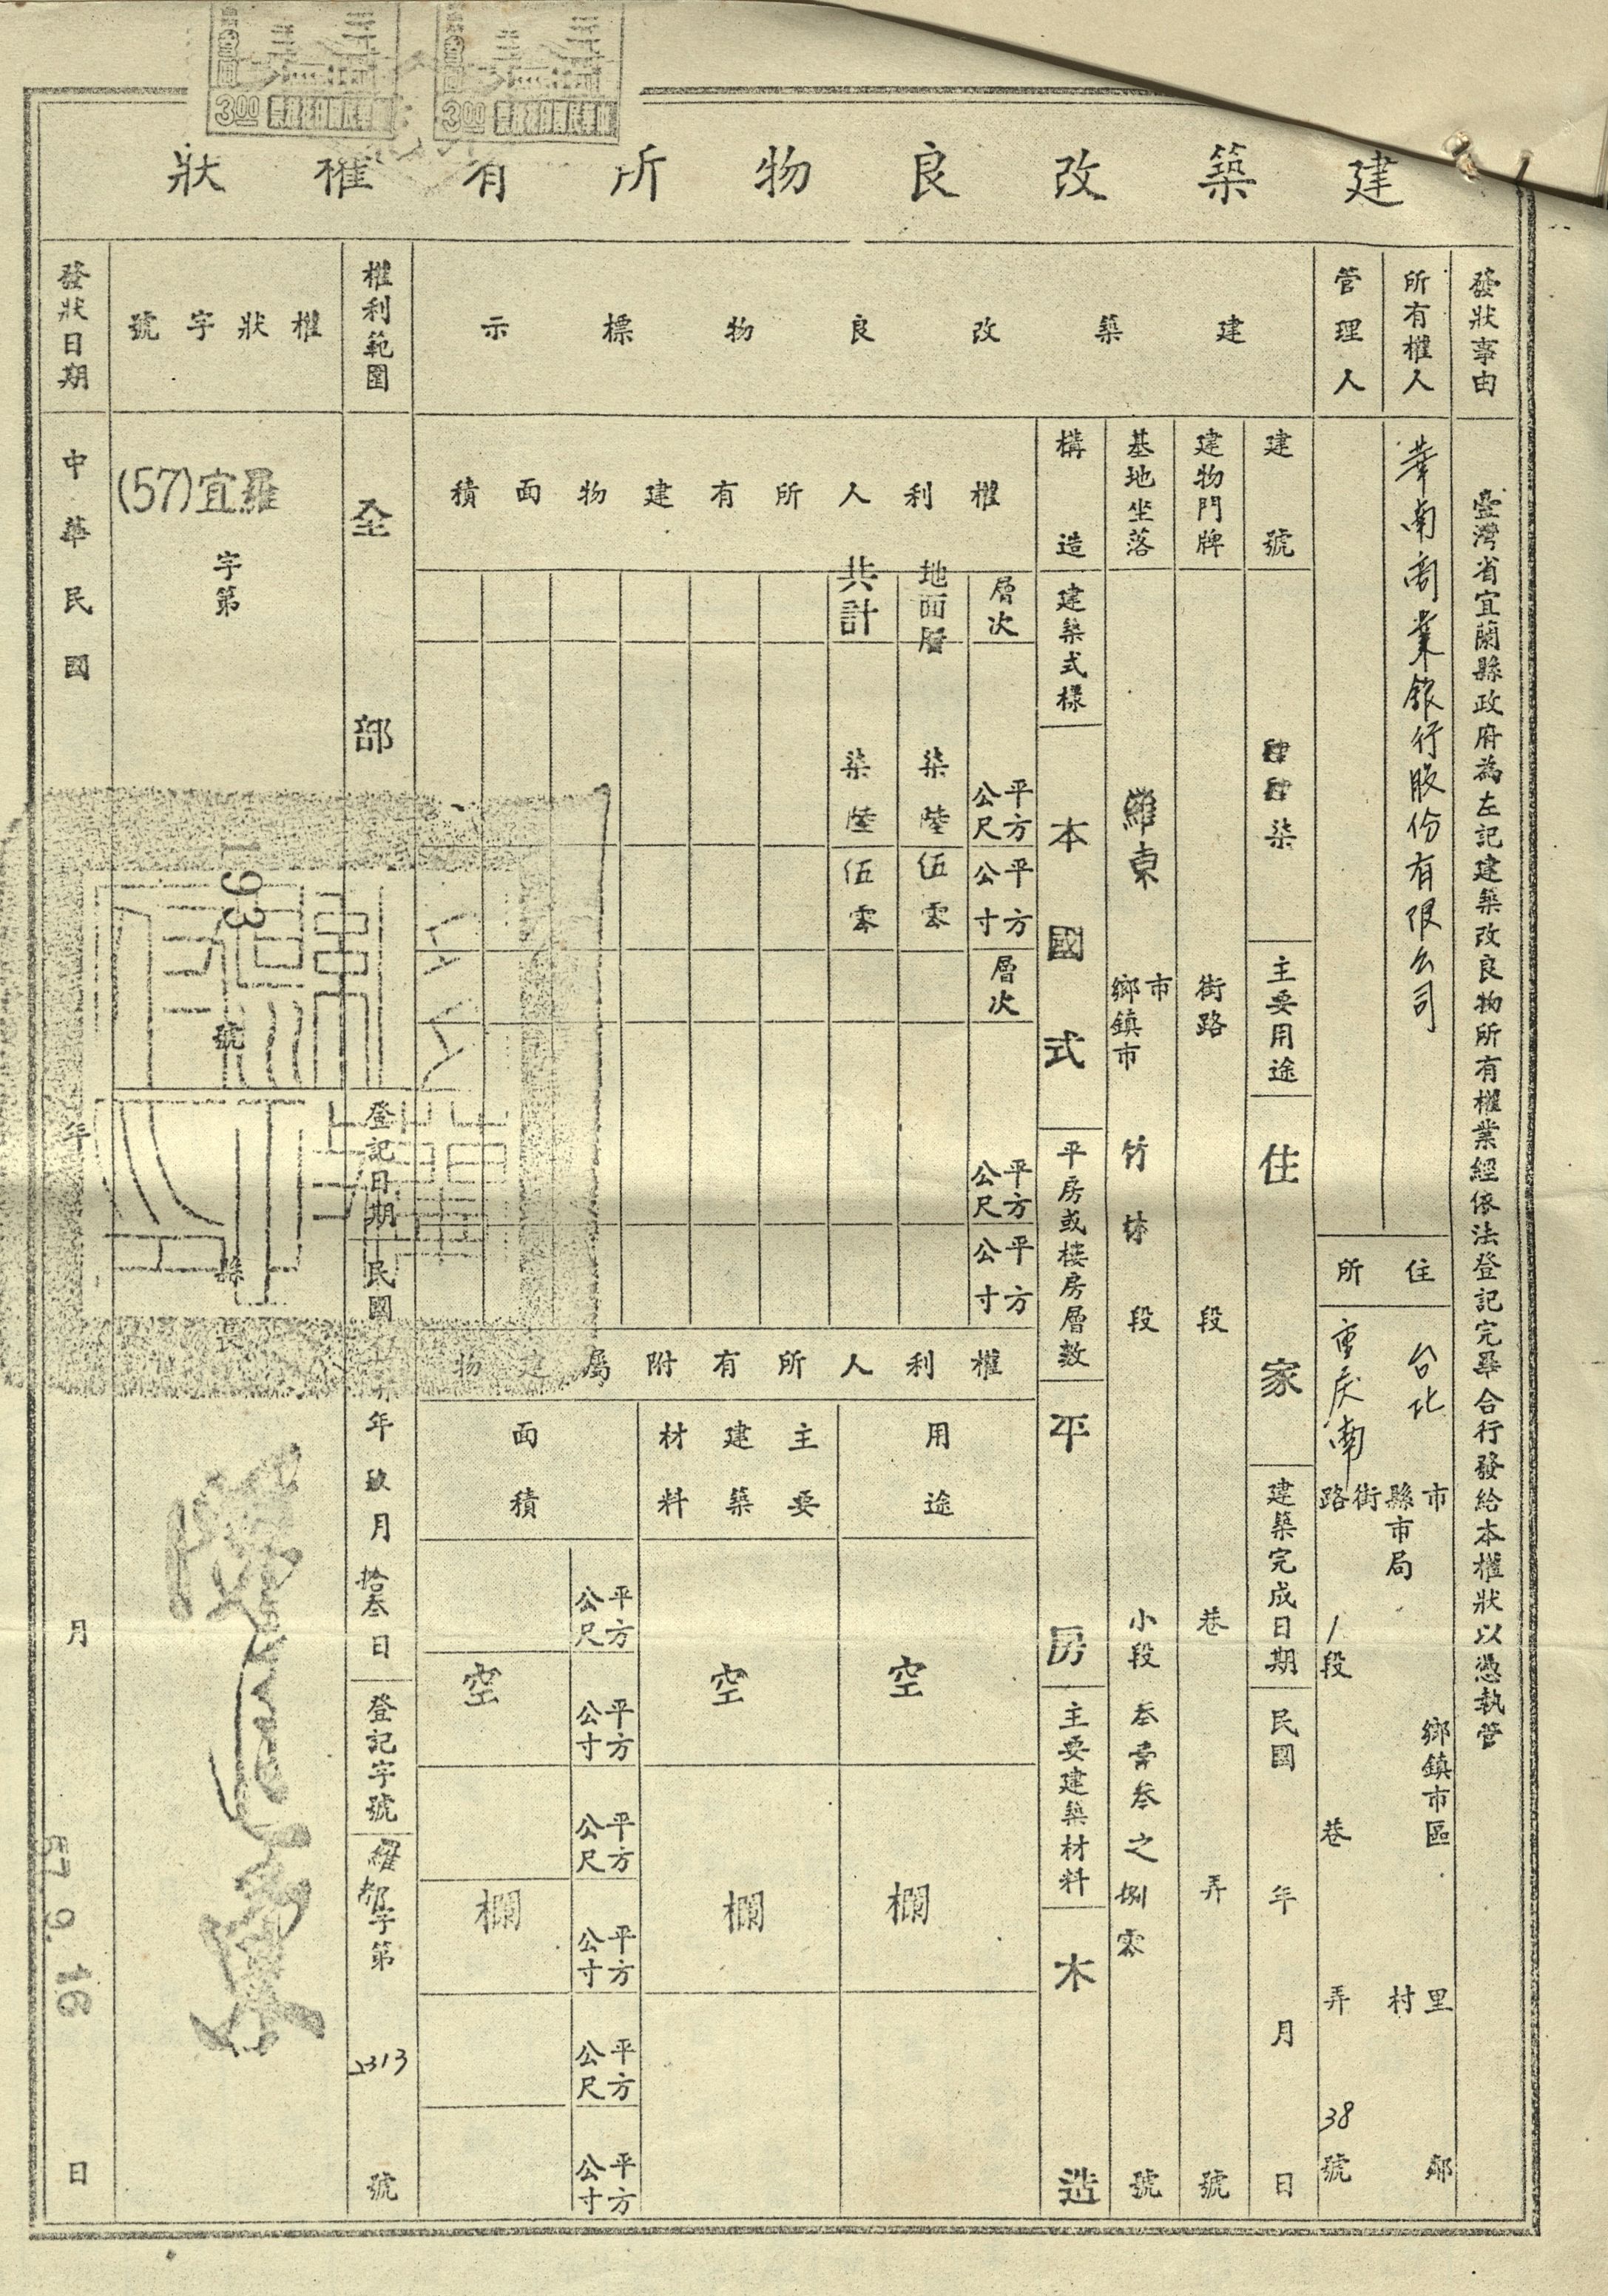 建築改良物所有權狀
發狀事由
臺灣省宜蘭縣政府為左記建築改良物所有權業經依法登記完畢合行發給本權狀以憑執管
所有權人
華南商業銀行股份有限公司
管理人
住所
台北市
縣市局
鄉鎮市區
里
村
鄰
重慶南路街
1段
巷
弄
38號
建築改良物標示
建號
肆肆柒
主要用途
住家
建築完成日期
民國 年 月 日
建物門牌
街路
段
巷
弄
號
基地坐落
羅東
市
鄉鎮市
竹林段
小段
叁壹叁之捌零
號
構造
建築式樣
本國式
平房或樓房層數
平房
主要建築材料
木造
權利人所有建物面積
層次
平方公尺
平方公寸
層次
平方公尺
平方公寸
地面層
柒陸
伍零
共計
柒陸
伍零
權利人所有附屬建物
用途
空欄
主要建築材料
空欄
面積
平方公尺
平方公寸
平方公尺
平方公寸
平方公尺
平方公寸
空欄
權利範圍
全部
登記日期
民國
年玖月拾叁日
登記字號
羅都字第
2313
號
權狀字號
(57)宜羅
字第
193
號
縣長
發狀日期
中華民國 年 月 日
57 9. 16
3.00
3.00